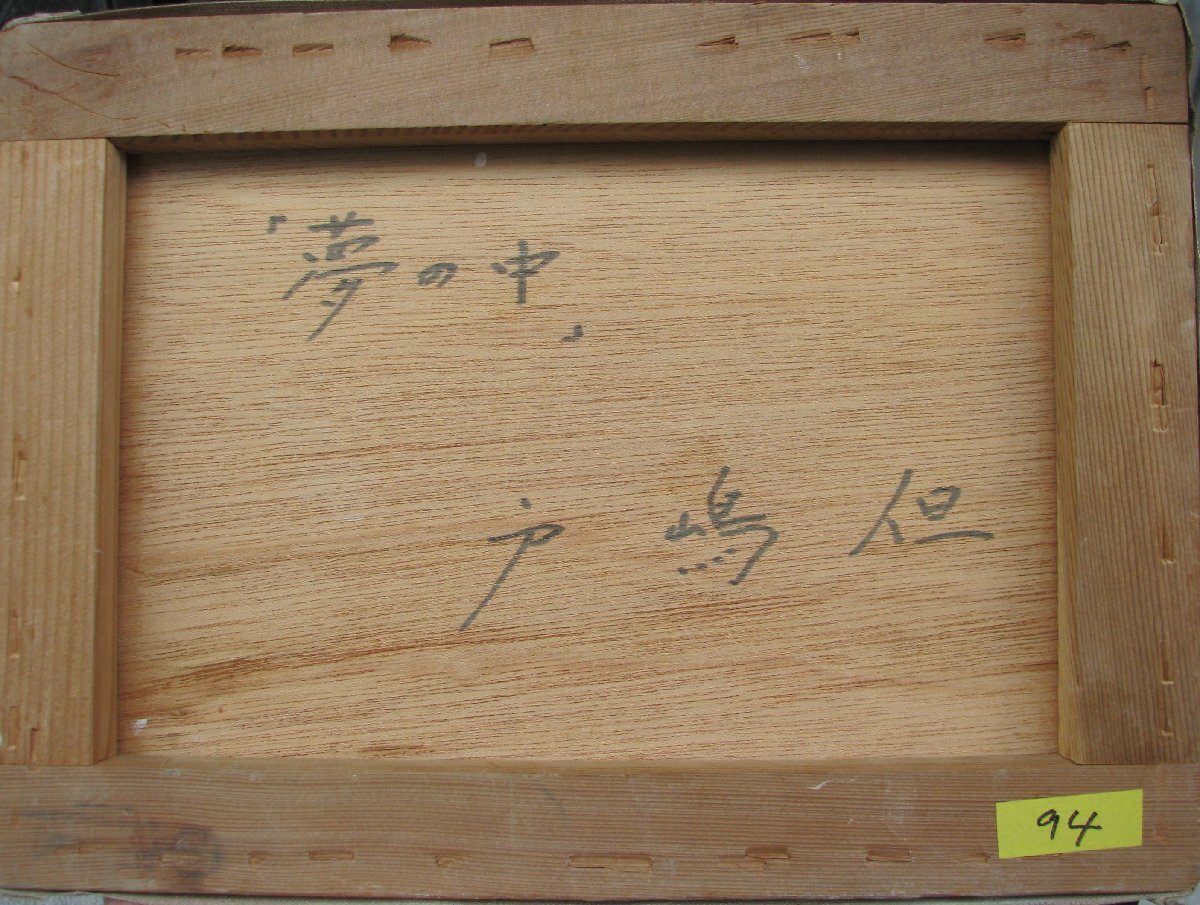 「夢の中」
戸嶋但
94